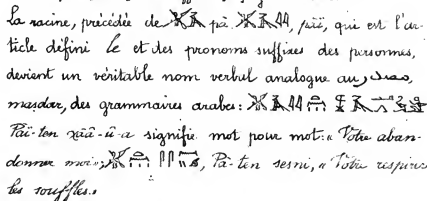 La racine, précédée de 𓅯𓄿 pâ 𓅯𓄿𓇋𓇋, pâï, qui est l'ar-
ticle défini le et des pronoms suffixes des personnes,
devient un véritable nom verbal analogue au مصدر,
maṣdar, des grammaires arabes:
Pâï-ten χââ-û-a signifie mot pour mot: « Votre aban-
donner moi »; Pâ-ten sesni, « Votre respirer
les souffles. »